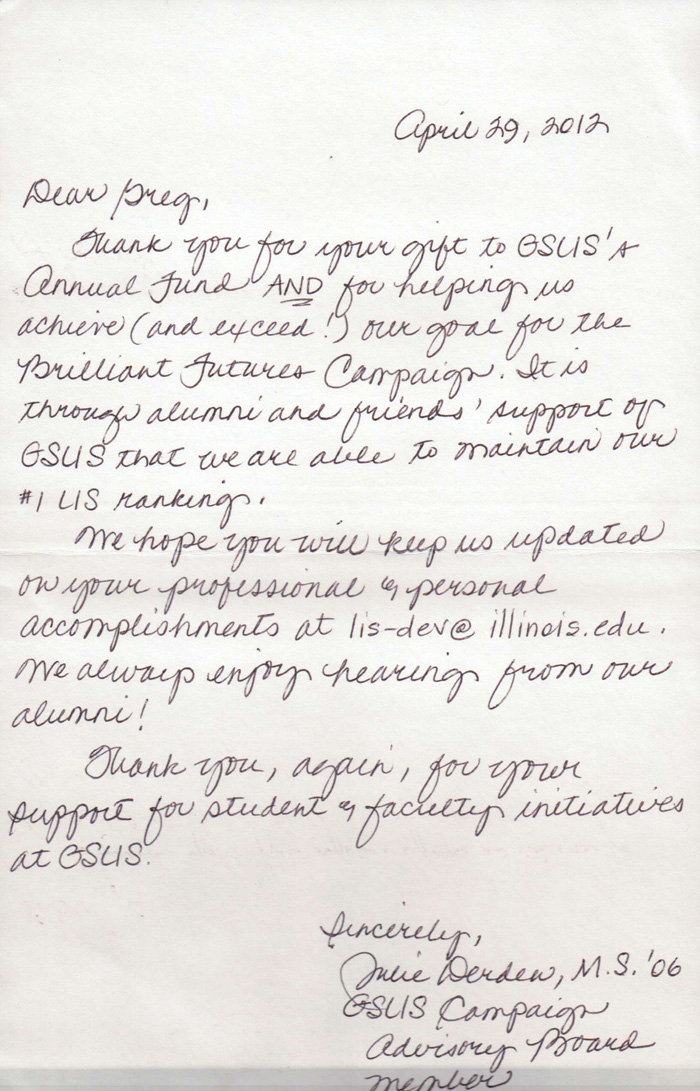 April 29, 2012
Dear Greg,
Thank you for your gift to GSLIS's
Annual Fund AND for helping us
achieve (and exceed!) our goal for the
Brilliant Futures Campaign. It is
through alumni and friends' support of
GSLIS that we are able to maintain our
#1 LIS ranking.
We hope you will keep us updated
on your professional & personal
accomplishments at lis-dev@illinois.edu.
We always enjoy hearing from our
alumni!
Thank you, again, for your
support for student & faculty initiatives
at GSLIS.
Sincerely,
Julie Derden, M.S. '06
GSLIS Campaign
Advisory Board
Member